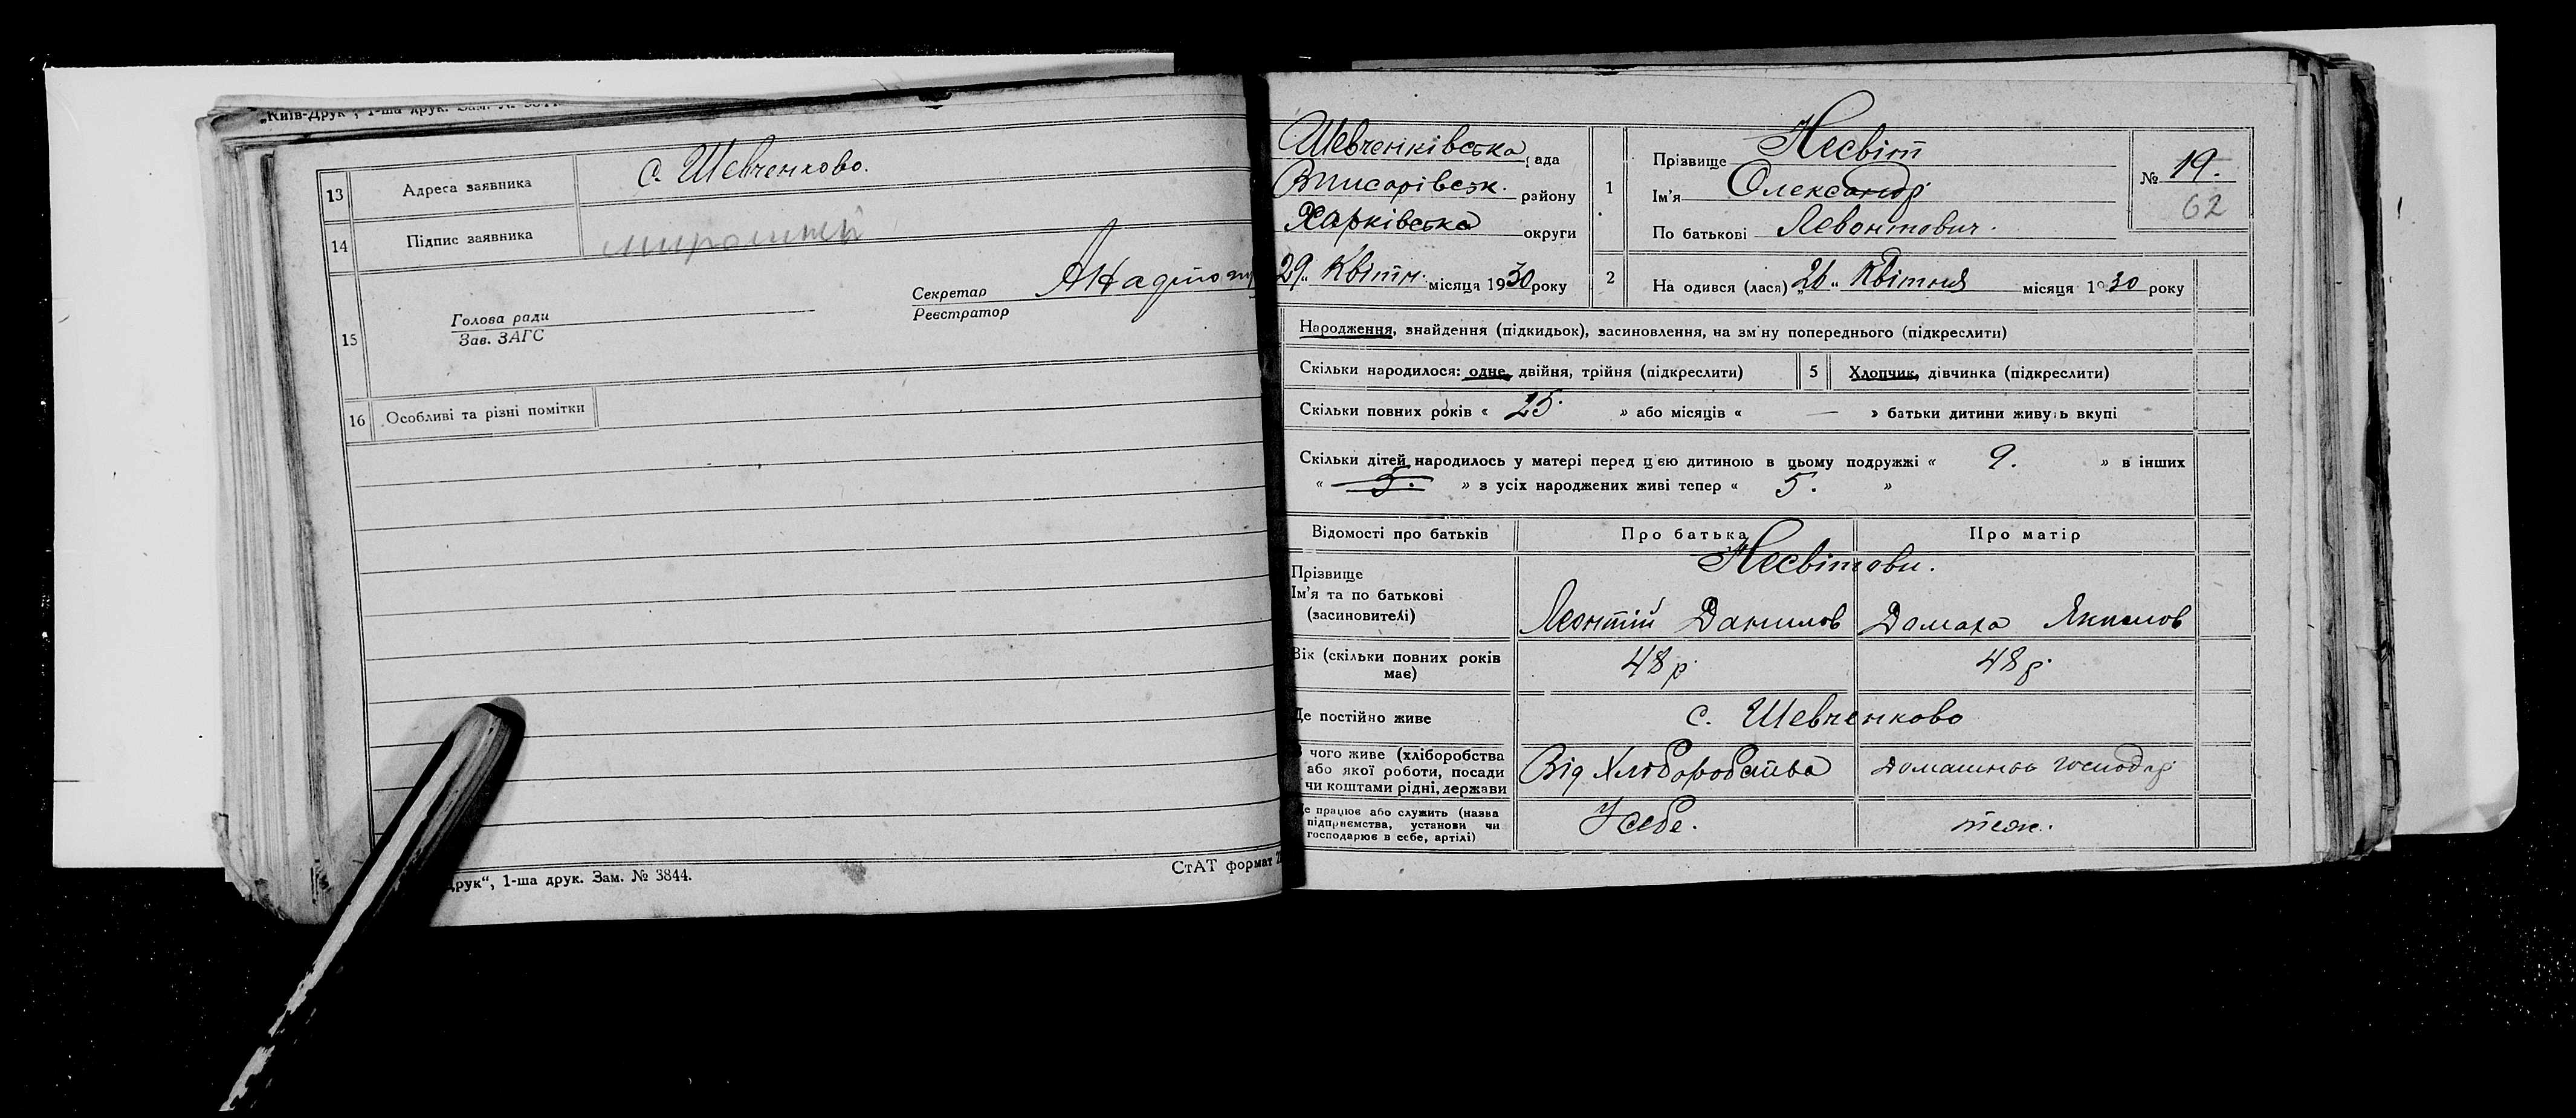 „Київ-Друк“, 1-ша друк. Зам. №
13 Адреса заявника с. Шевченково.
14 Підпис заявника
15 Голова ради
Зав. ЗАГС
Секретар
Реєстратор
16 Особливі та різні помітки
друк“, 1-ша друк. Зам. № 3844.
СтАТ формат
Шевченківська рада
Вписарівськ. району
Харківська округи
29 „ Квітн. місяця 1930 року
1 Прізвище Несвіт
Ім'я Олександр
По батькові Левонтович.
№ 19.
62
2 На одився (лася) „26“ Квітня місяця 1930 року
Народження, знайдення (підкидьок), засиновлення, на зм ну попереднього (підкреслити)
Скільки народилося: одне, двійня, трійня (підкреслити) 5 Хлопчик, дівчинка (підкреслити)
Скільки повних років « 25 » або місяців « — » батьки дитини живуть вкупі
Скільки дітей народилось у матері перед цією дитиною в цьому подружжі « 9. » в інших
« 5. » з усіх народжених живі тепер « 5. »
Відомості про батьків Про батька Про матір
Несвітови.
Прізвище
Ім'я та по батькові
(засиновителі)
Леонтій Данилов Домаха Якимов
Вік (скільки повних років
має)
48 р. 48 р.
Де постійно живе с. Шевченково
чого живе (хліборобства
або якої роботи, посади
чи коштами рідні, держави
Від Хліборобства домашнье господар
е працює або служить (назва
підприємства, установи чи
господарює в себе, артілі)
У себе. теж.